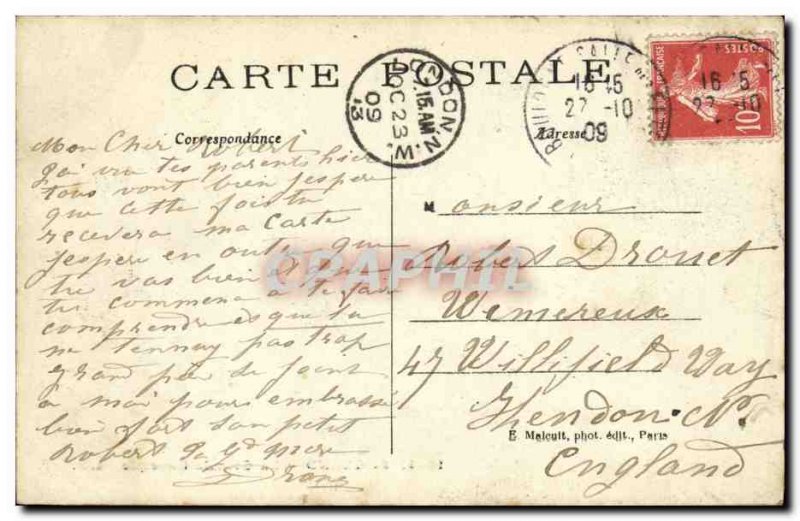 CARTE POSTALE
Correspondance
Adresse
LONDON.N.W.
.15.AM
OC 23
09
13
16 45
22 -10
09
16 45
22 -10
POSTES
10
Mon Cher Robert
J'ai vu tes parents hier
tous vont bien j'espère
que cette fois tu
recevera ma Carte
j'espère en outre que
tu vas bien et que
tu commence à te faire
comprendre
pas trop
grand
a moi pour embrasser
bien fort son petit
Robert ta Gd mère
Monsieur
Robert Drouet
Wemereux
47 Willifield Way
Hendon. N.
England
E Malcuit, phot. édit., Paris
CPAPHIL